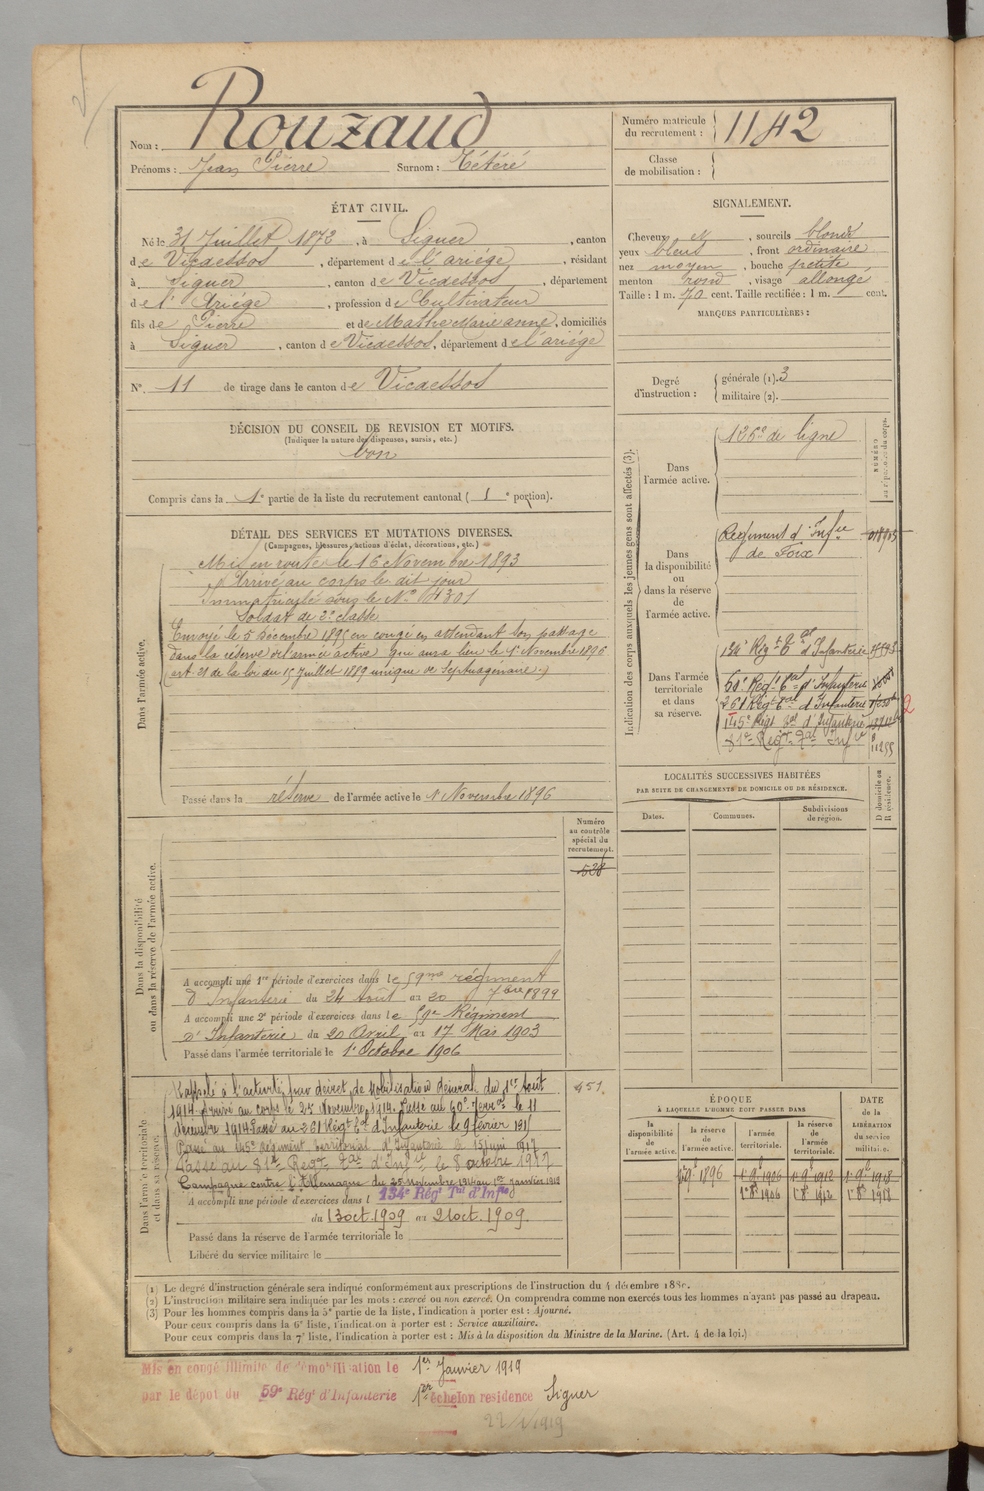 Nom : Rouzaud
Prénoms : Jean Pierre Surnom : Tétéré
ÉTAT CIVIL.
Né le 31 Juillet 1872, à Siguer, canton
de Vicdessos, département de l'ariège, résidant
à Siguer, canton de Vicdessos, département
de l'Ariège, profession de Cultivateur
fils de Pierre et de Mathe Marie anne, domiciliés
à Siguer, canton de Vicdessos, département de l'ariège
N° 11 de tirage dans le canton de Vicdessos
DÉCISION DU CONSEIL DE REVISION ET MOTIFS.
(Indiquer la nature des dispenses, sursis, etc.)
bon
Compris dans la 1e partie de la liste du recrutement cantonal ( 1e portion).
DÉTAIL DES SERVICES ET MUTATIONS DIVERSES.
(Campagnes, blessures, actions d'éclat, décorations, etc.)
Dans l'armée active.
Mis en route le 16 Novembre 1893
Arrivé au corps le dit jour
Immatriculé sous le N° 4301
Soldat de 2e classe
Envoyé le 5 Décembre 1895 en congé en attendant son passage
dans la réserve de l'armée active qui aura lieu le 1er Novembre 1896
(art. 21 de la loi du 15 Juillet 1889 unique de Septuagénaire.)
Passé dans la réserve de l'armée active le 1er Novembre 1896
Numéro
au contrôle
spécial du
recrutement.
528
Dans la disponibilité
ou dans la réserve de l'armée active.
A accompli une 1re période d'exercices dans le 59me régiment
d'Infanterie du 24 Août au 20 7bre 1899
A accompli une 2e période d'exercices dans le 59e Régiment
d'Infanterie du 20 Avril au 17 Mai 1903
Passé dans l'armée territoriale le 1er Octobre 1906
Dans l'armée territoriale
et dans sa réserve.
Rappelé à l'activité par décret de Mobilisation Général du 1er Août
1914 Arrivé au corps le 25 Novembre 1914. Passé au 60e Terral le 11
décembre 1914 Passé au 261 Régt Tal d'Infanterie le 9 février 1915
Passé au 145e Régiment territorial d'Infanterie le 15 juin 1917
Passé au 81e Regt Tal d'Infie le 8 octobre 1917
Campagne contre l'Allemagne du 25 novembre 1914 au 1er janvier 1919
A accompli une période d'exercices dans l 134e Régt Tal d'Infie
du 13 oct. 1909 au 21 oct. 1909.
Passé dans la réserve de l'armée territoriale le
Libéré du service militaire le
451
Numéro matricule
du recrutement : 1142
Classe
de mobilisation :
SIGNALEMENT.
Cheveux et, sourcils blonds
yeux bleus, front ordinaire
nez moyen, bouche petite
menton rond, visage allongé
Taille : 1 m. 70 cent. Taille rectifiée : 1 m. cent.
MARQUES PARTICULIÈRES :
Degré
d'instruction :
générale (1). 3
militaire (2).
Indication des corps auxquels les jeunes gens sont affectés (3).
Dans
l'armée active.
126e de ligne
Dans
la disponibilité
ou
dans la réserve
de
l'armée active.
Régiment d'Infie
de Foix
Dans l'armée
territoriale
et dans
sa réserve.
134e Régt Tal d'Infanterie
60e Régt Tal d'Infanterie
261 Régt Tal d'Infanterie
145e Régt Tal d'Infanterie
81e Regt Tal Infie 11255
2
LOCALITÉS SUCCESSIVES HABITÉES
PAR SUITE DE CHANGEMENTS DE DOMICILE OU DE RÉSIDENCE.
Dates.
Communes.
Subdivisions
de région.
D domicile ou
R résidence.
ÉPOQUE
À LAQUELLE L'HOMME DOIT PASSER DANS
la
disponibilité
de
l'armée active.
la réserve
de
l'armée active.
l'armée
territoriale.
la réserve
de
l'armée
territoriale.
DATE
de la
LIBÉRATION
du service
militaire.
1er 9bre 1896
1er 9bre 1906
1er 9bre 1912
1er 9bre 1918
1er 8bre 1906
1er 8bre 1912
1er 8bre 1918
(1) Le degré d'instruction générale sera indiqué conformément aux prescriptions de l'instruction du 4 décembre 1889.
(2) L'instruction militaire sera indiquée par les mots : exercé ou non exercé. On comprendra comme non exercés tous les hommes n'ayant pas passé au drapeau.
(3) Pour les hommes compris dans la 5e partie de la liste, l'indication à porter est : Ajourné.
Pour ceux compris dans la 6e liste, l'indication à porter est : Service auxiliaire.
Pour ceux compris dans la 7e liste, l'indication à porter est : Mis à la disposition du Ministre de la Marine. (Art. 4 de la loi.)
Mis en congé illimité de démobilisation le 1er Janvier 1919
par le dépôt du 59e Régt d'Infanterie 1er échelon residence Siguer
22/1/1919